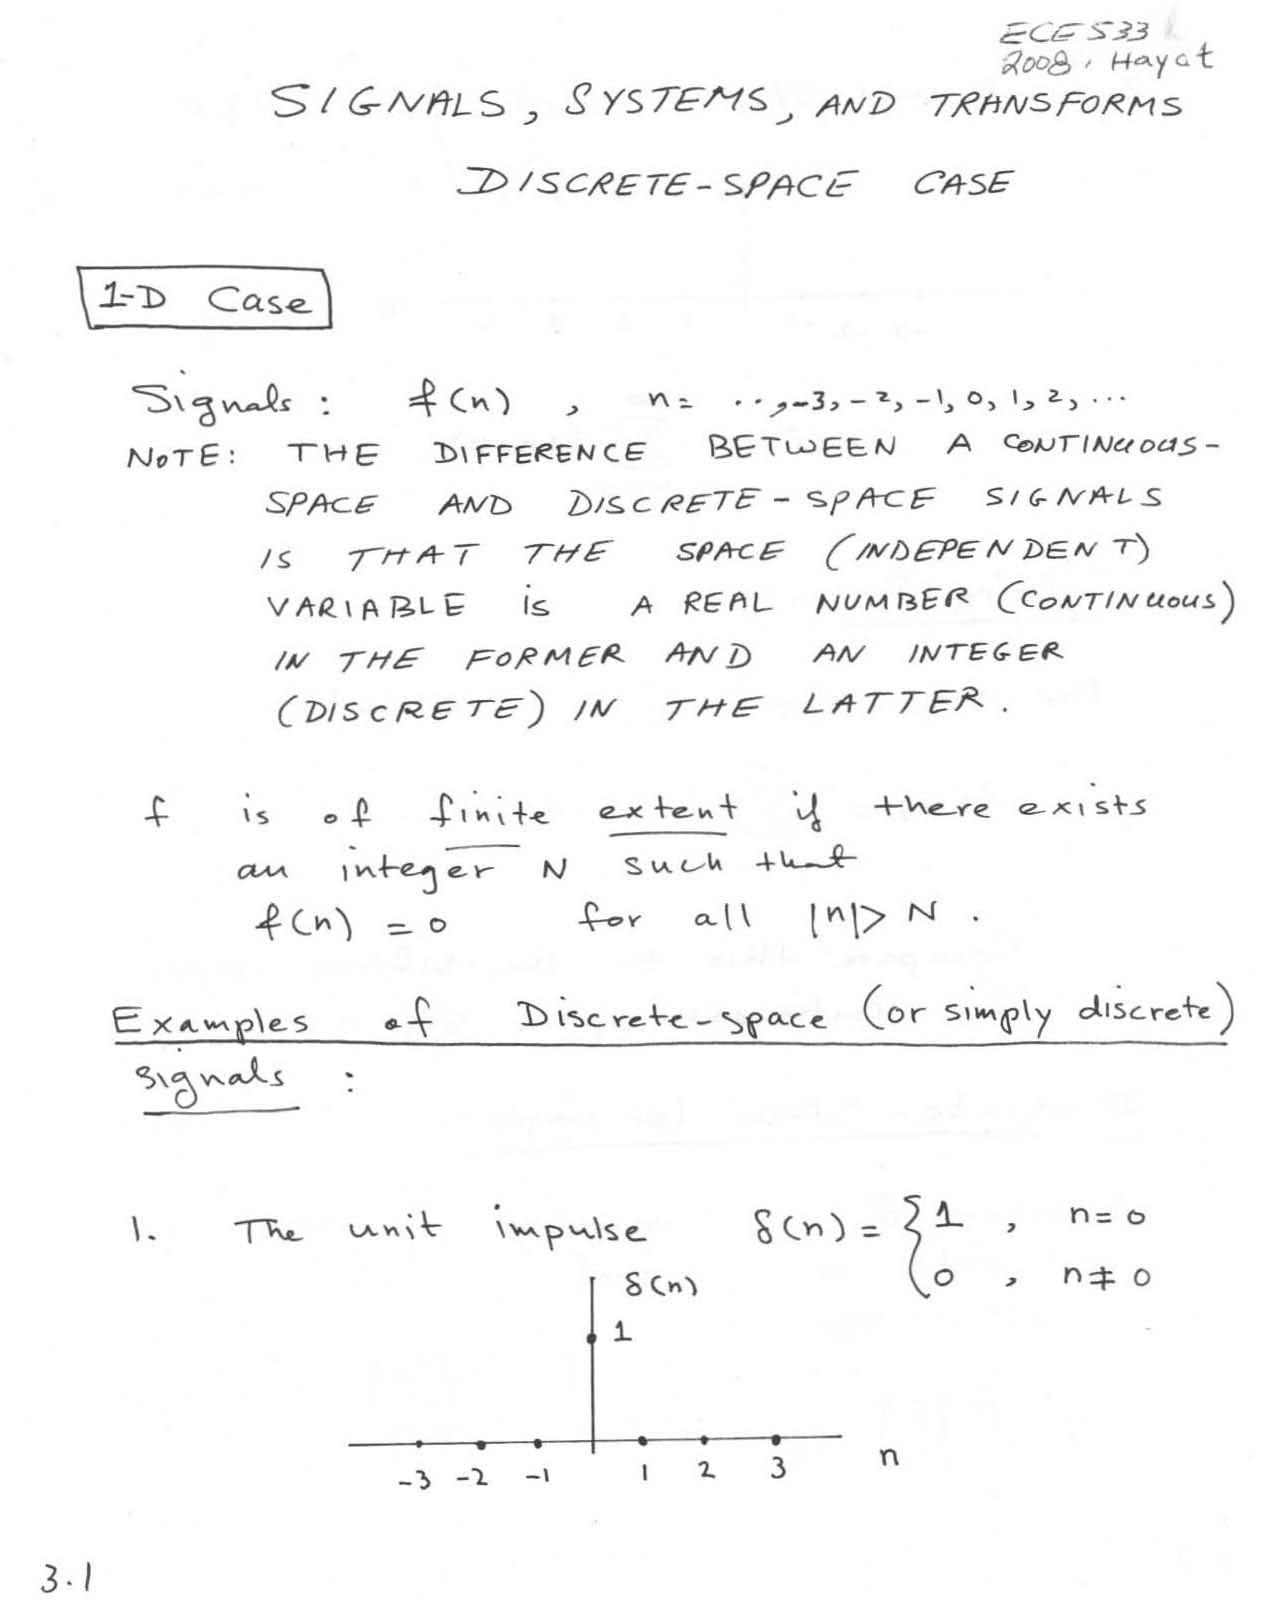 ECE 533
2008, Hayat
SIGNALS, SYSTEMS, AND TRANSFORMS
DISCRETE-SPACE CASE
1-D Case
Signals: f(n), n= ..,-3,-2,-1,0,1,2,...
NOTE: THE DIFFERENCE BETWEEN A CONTINUOUS-
SPACE AND DISCRETE-SPACE SIGNALS
IS THAT THE SPACE (INDEPENDENT)
VARIABLE is A REAL NUMBER (CONTINUOUS)
IN THE FORMER AND AN INTEGER
(DISCRETE) IN THE LATTER.
f is of finite extent if there exists
an integer N such that
f(n) = 0 for all |n|> N.
Examples of Discrete-space (or simply discrete)
signals :
1. The unit impulse δ(n) = { 1 , n=0
0 , n≠0
δ(n)
1
-3 -2 -1 1 2 3 n
3.1